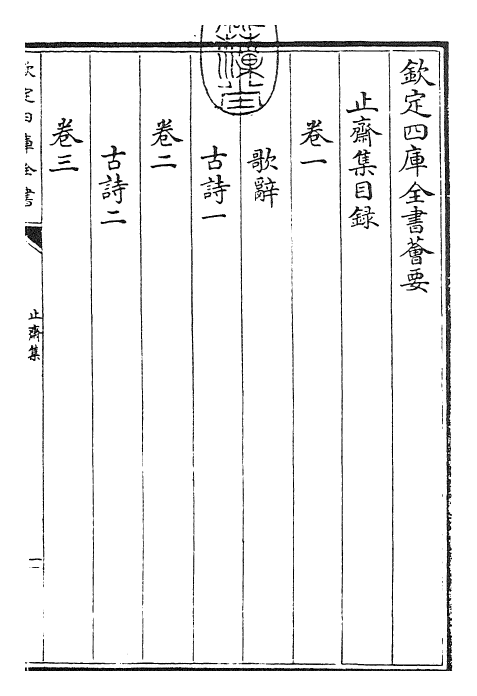 欽定四庫全書薈要
止齋集目録
卷一
歌辭
古詩一
卷二
古詩二
卷三
欽定四庫全書
止齋集
一